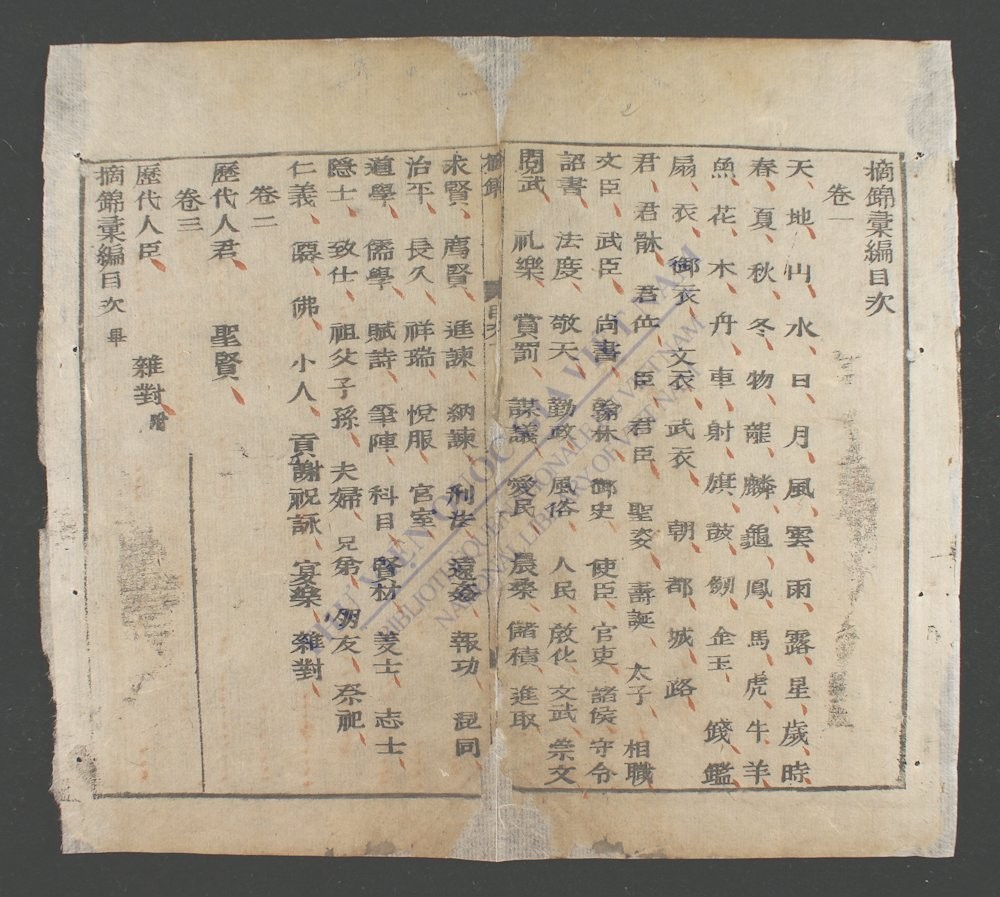 摘錦彙編目次
卷一
天地山水日月風雲雨露星歲時
春夏秋冬物龍麟龜鳳馬虎牛羊
魚花木舟車射旗鼓劒金玉錢鑑
扇衣御衣文衣武衣朝都城路
君君臣君位臣君臣聖姿壽誕太子相職
文臣武臣尚書翰林御史使臣官吏諸侯守令
詔書法度敬天勤政風俗人民啟化文武崇文
閱武礼樂賞罰謀議愛民農桑儲積進取
摘錦 目次
求賢薦賢進諫納諫刑法遠姦報功混同
治平長久祥瑞悅服宮室
道學儒學賦詩筆陣科目賢材美士志士
隱士致仕祖父子孫夫婦兄弟朋友祭祀
仁義勇佛小人貢謝祝詠宴樂雜對
卷二
歷代人君 聖賢
卷三
歷代人臣 雜對附
摘錦彙編目次 畢
THƯ VIỆN QUỐC GIA VIỆT NAM
BIBLIOTHÈQUE NATIONALE DU VIETNAM
NATIONAL LIBRARY OF VIETNAM